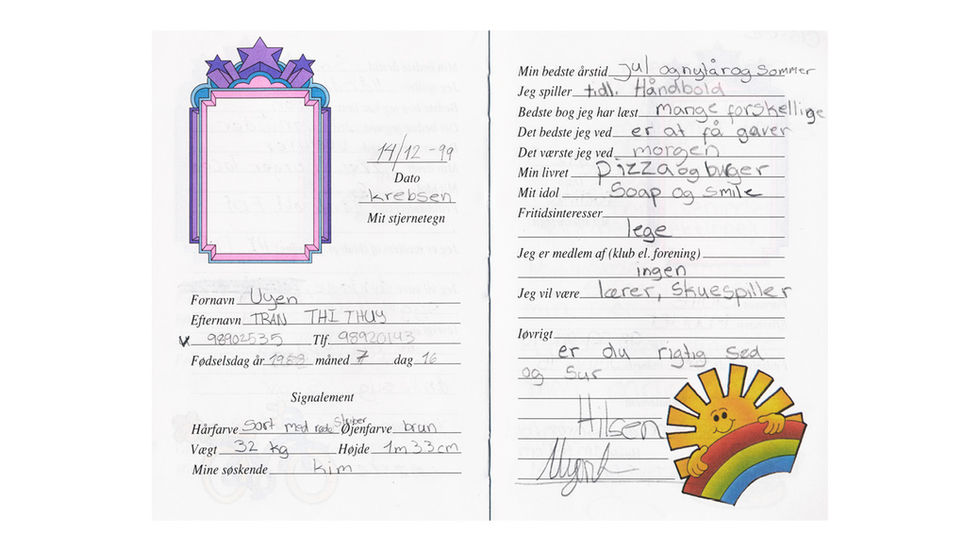 14/12-99
Dato
Krebsen
Mit stjernetegn
Fornavn Uyen
Efternavn TRAN THI THUY
98902535 Tlf 98920143
Fødselsdag år 1988 måned 7 dag 16
Signalement
Hårfarve Sort med røde striber Øjenfarve brun
Vægt 32 kg Højde 1m 33cm
Mine søskende kim
Min bedste årstid jul og nytår og Sommer
Jeg spiller tidl. Håndbold
Bedste bog jeg har læst mange forskellige
Det bedste jeg ved er at få gaver
Det værste jeg ved morgen
Min livret pizza og buger
Mit idol Soap og smile
Fritidsinteresser
lege
Jeg er medlem af (klub el. forening)
ingen
Jeg vil være lærer, skuespiller
Iøvrigt
er du rigtig sød
og sur
Hilsen